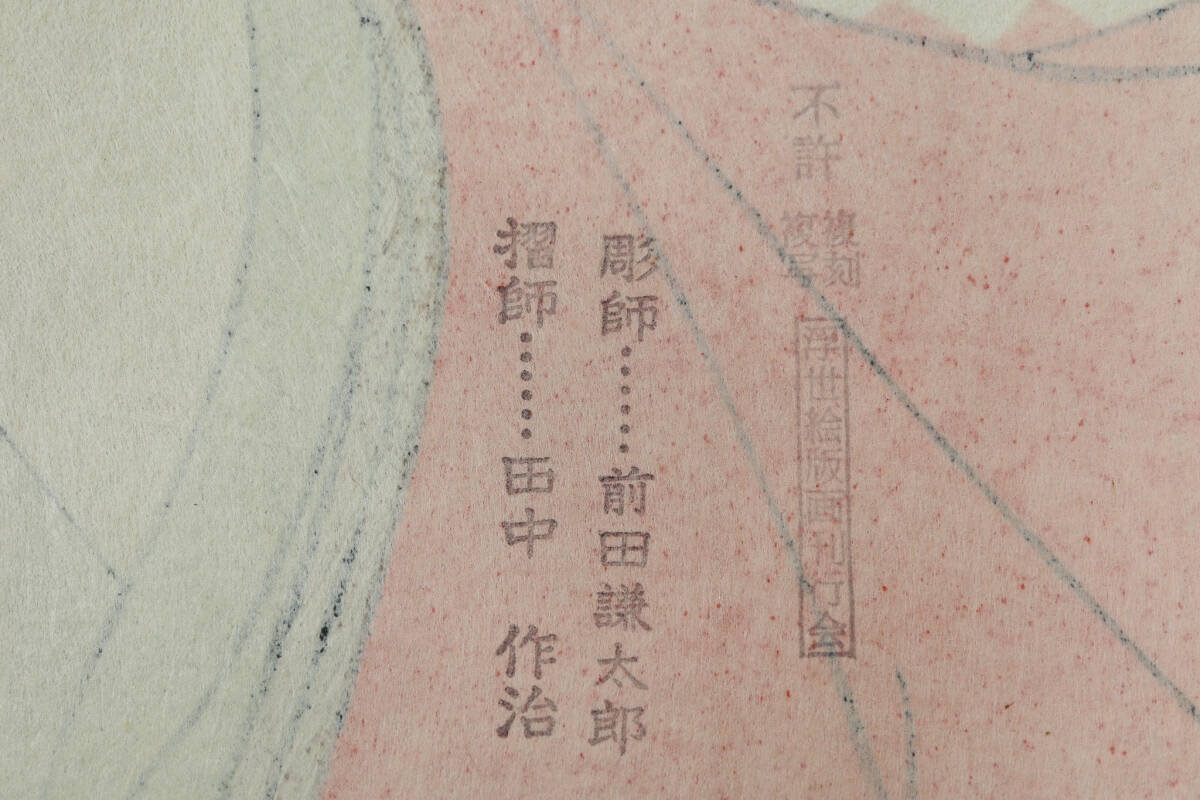 不許複刻複写
浮世絵版画刊行会
彫師……前田謙太郎
摺師……田中 作治